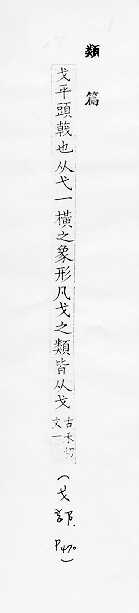 類篇
戈平頭戟也从弋一橫之象形凡戈之類皆从戈古禾切文一
(戈部 P.470)